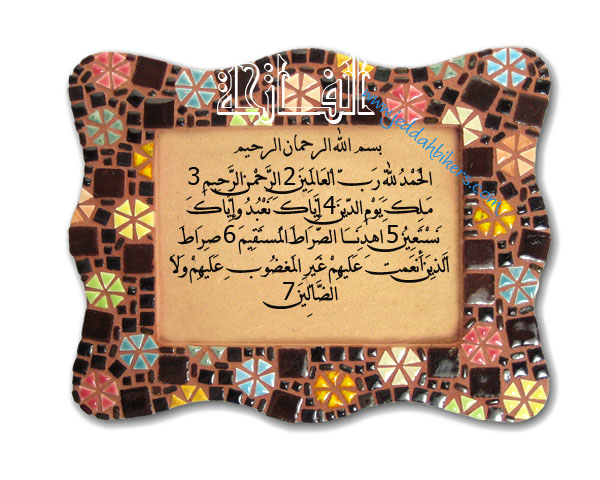 الفاتحة
www.jeddahbikers.com
بسم الله الرحمان الرحيم
الحَمْدُ للهِ رَبِّ العَالمِينَ 2 الرَّحْمنِ الرَّحِيمِ 3
مَلِكِ يَوْمِ الدِّينِ 4 إِيَّاكَ نَعْبُدُ وإِيَّاكَ
نَسْتَعِينُ 5 اهدِنَــا الصِّرَاطَ المُستَقِيمَ 6 صِرَاطَ
الَّذِينَ أَنعَمتَ عَلَيهِمْ غَيرِ المَغضُوبِ عَلَيهِمْ وَلاَ
الضَّالِّينَ 7